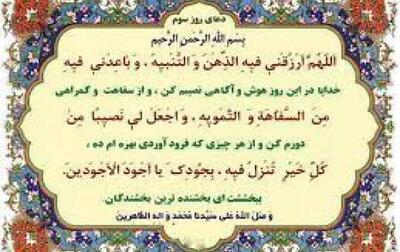 دعای روز سوم
بِسْمِ اللهِ الرَّحْمنِ الرَّحیمِ
اَللّهُمَّ ارْزُقْنی فیهِ الذِّهْنَ وَ التَّنْبیهَ ، وَ باعِدْنی فیهِ
خدایا در این روز هوش و آگاهی نصیبم کن ، و از سفاهت و گمراهی
مِنَ السَّفاهَةِ وَ التَّمْویهِ ، وَ اجْعَلْ لی نَصیبًا مِنْ
دورم کن و از هر چیزی که فرود آوردی بهره ام ده ،
کُلِّ خَیْرٍ تُنْزِلُ فیهِ ، بِجُودِکَ یا اَجْوَدَ الْاَجْوَدینَ .
ببخششت ای بخشنده ترین بخشندگان.
وَ صَلَّ اللهُ عَلی سَیِّدِنا مُحَمَّدٍ وَ الِهِ الطّاهِرینَ